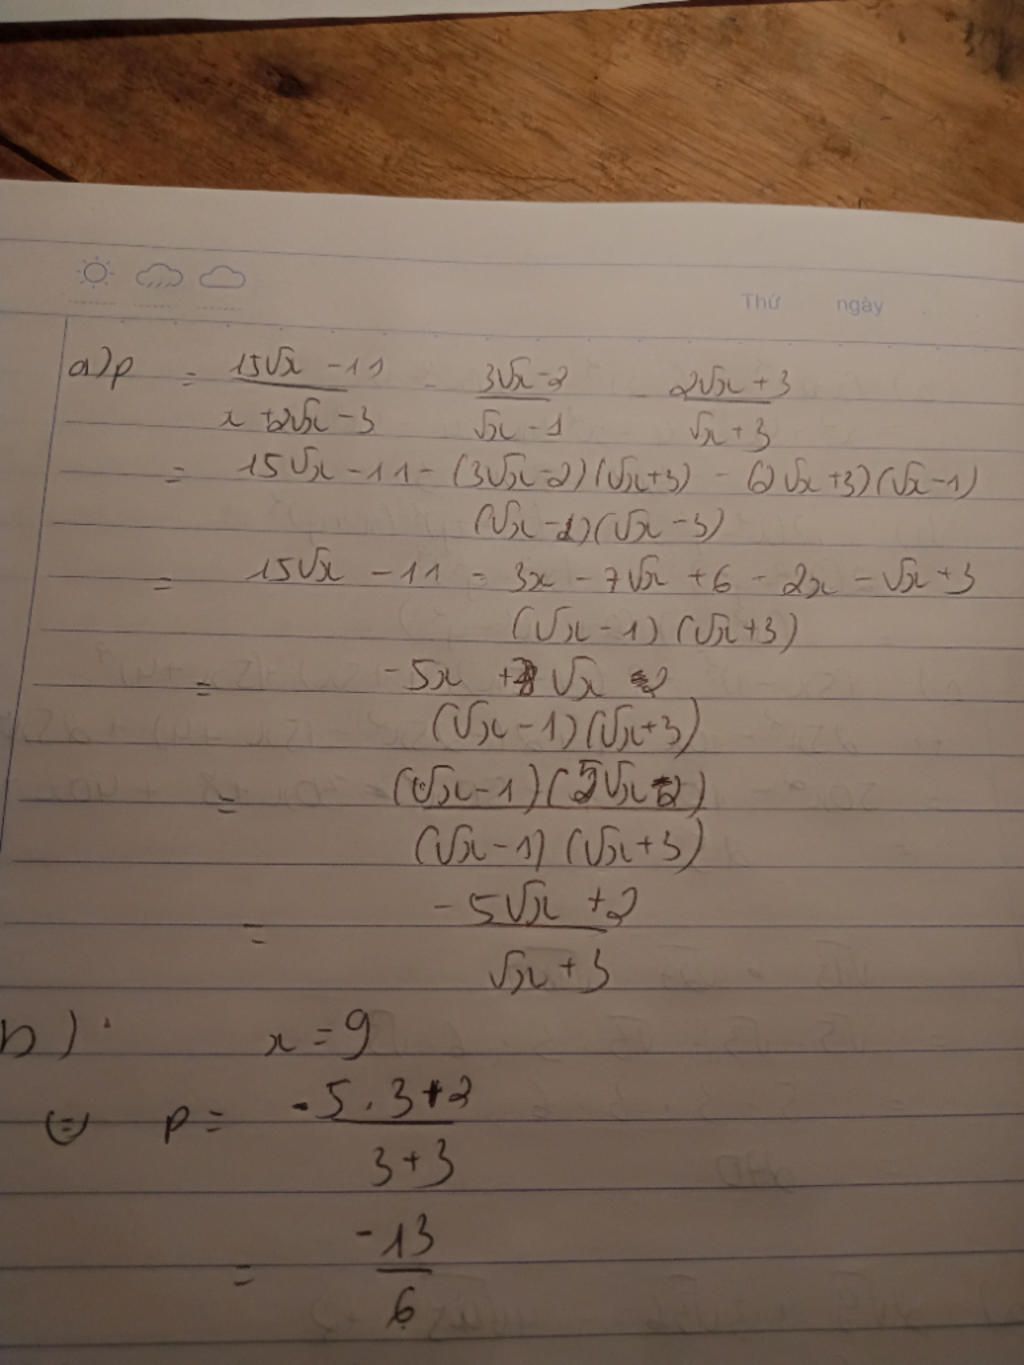 Thứ ngày
a) P = (15√x - 11)/(x + 2√x - 3) - (3√x - 2)/(√x - 1) - (2√x + 3)/(√x + 3)
= (15√x - 11 - (3√x - 2)(√x + 3) - (2√x + 3)(√x - 1))/((√x - 1)(√x - 3))
= (15√x - 11 - 3x - 7√x + 6 - 2x - √x + 3)/((√x - 1)(√x + 3))
= (-5x + √x - 2)/((√x - 1)(√x + 3))
= ((√x - 1)(5√x - 2))/((√x - 1)(√x + 3))
= (-5√x + 2)/(√x + 3)
b) x = 9
(=) P = (-5 . 3 + 2)/(3 + 3)
= -13/6